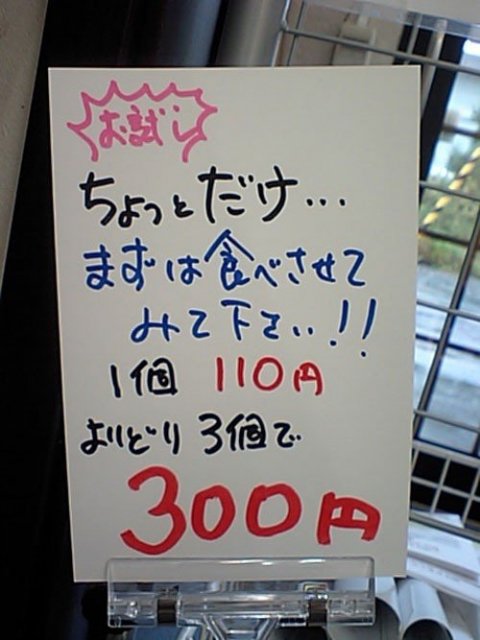 お試し
ちょっとだけ…
まずは食べさせて
みて下さい!!
1個 110円
よりどり 3個で
300円